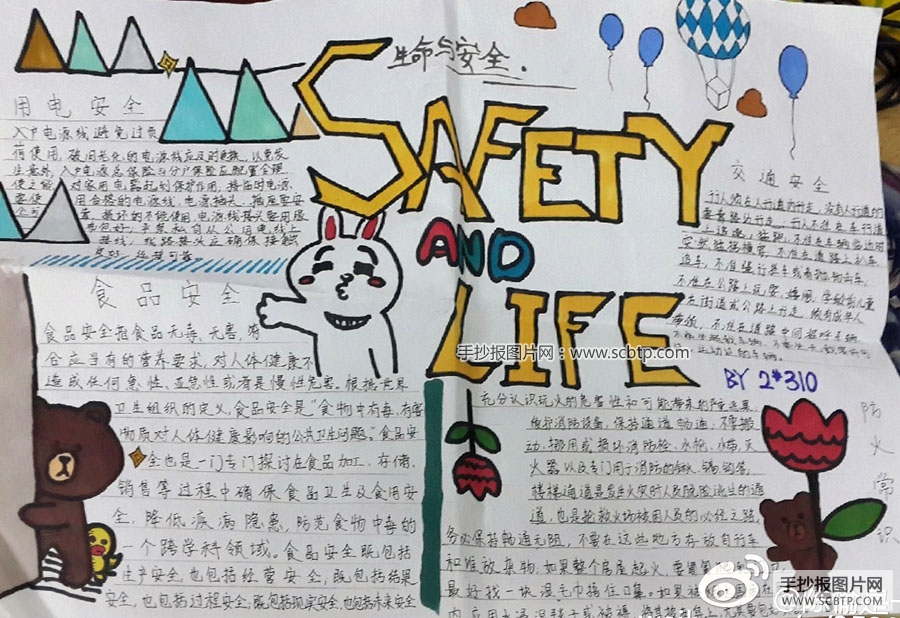 生命与安全.
SAFETY
AND
LIFE
BY 2#310
用电安全
入户电源线避免过负
荷使用,破旧老化的电源线应及时更换,以免发
生意外,入户电源总保险与分户保险应配置合理,
使之能 对家用电器起到保护作用,接临时电源,
要使 用合格的电源线,电源插头、插座要安
全可 靠,损坏的不能使用,电源线接头要用胶
布包好,严禁私自从公用电线上
接线,线路接头应确保接触
良好,连接可靠。
交通安全
行人须在人行道内行走,没有人行道的
靠路边行走,行人不准在车行道
上追逐、猛跑,不准在车辆临近时
突然猛拐横穿,不准在道路上扒车
追车,不准强行拦车或者抛物击车,
不准在公路上玩耍、嬉闹,学龄前儿童
在街道或公路上行走,须有成年人
带领,不准在道路中间招呼车辆
食品安全
食品安全指食品无毒、无害,符
合应当有的营养要求,对人体健康不
造成任何急性、亚急性或者是慢性危害。根据世界
卫生组织的定义,食品安全是“食物中有毒、有害
物质对人体健康影响的公共卫生问题。”食品安
全也是一门专门探讨在食品加工、存储、
销售等过程中确保食品卫生及食用安
全,降低疾病隐患,防范食物中毒的
一个跨学科领域。食品安全既包括
生产安全,也包括经营安全;既包括结果
安全,也包括过程安全;既包括现实安全,也包括未来安全
防火常识
充分认识玩火的危害性和可能带来的严重后果
爱护消防设备,保持通道畅通,不要搬
动、挪用或损坏消防栓、水枪、水带、灭
火器以及专门用于消防的铁锹、锅、钩等,
楼梯通道是发生火灾时人员脱险逃生的通
道,也是抢救火场被困人员的必经之路,
务必保持畅通无阻,不要在这些地方存放自行车
和堆放杂物,如果整个房屋起火,要
最好找一块湿毛巾捂住口鼻。如果
手抄报图片网:www.scbtp.com
手抄报图片网
WWW.SCBTP.COM